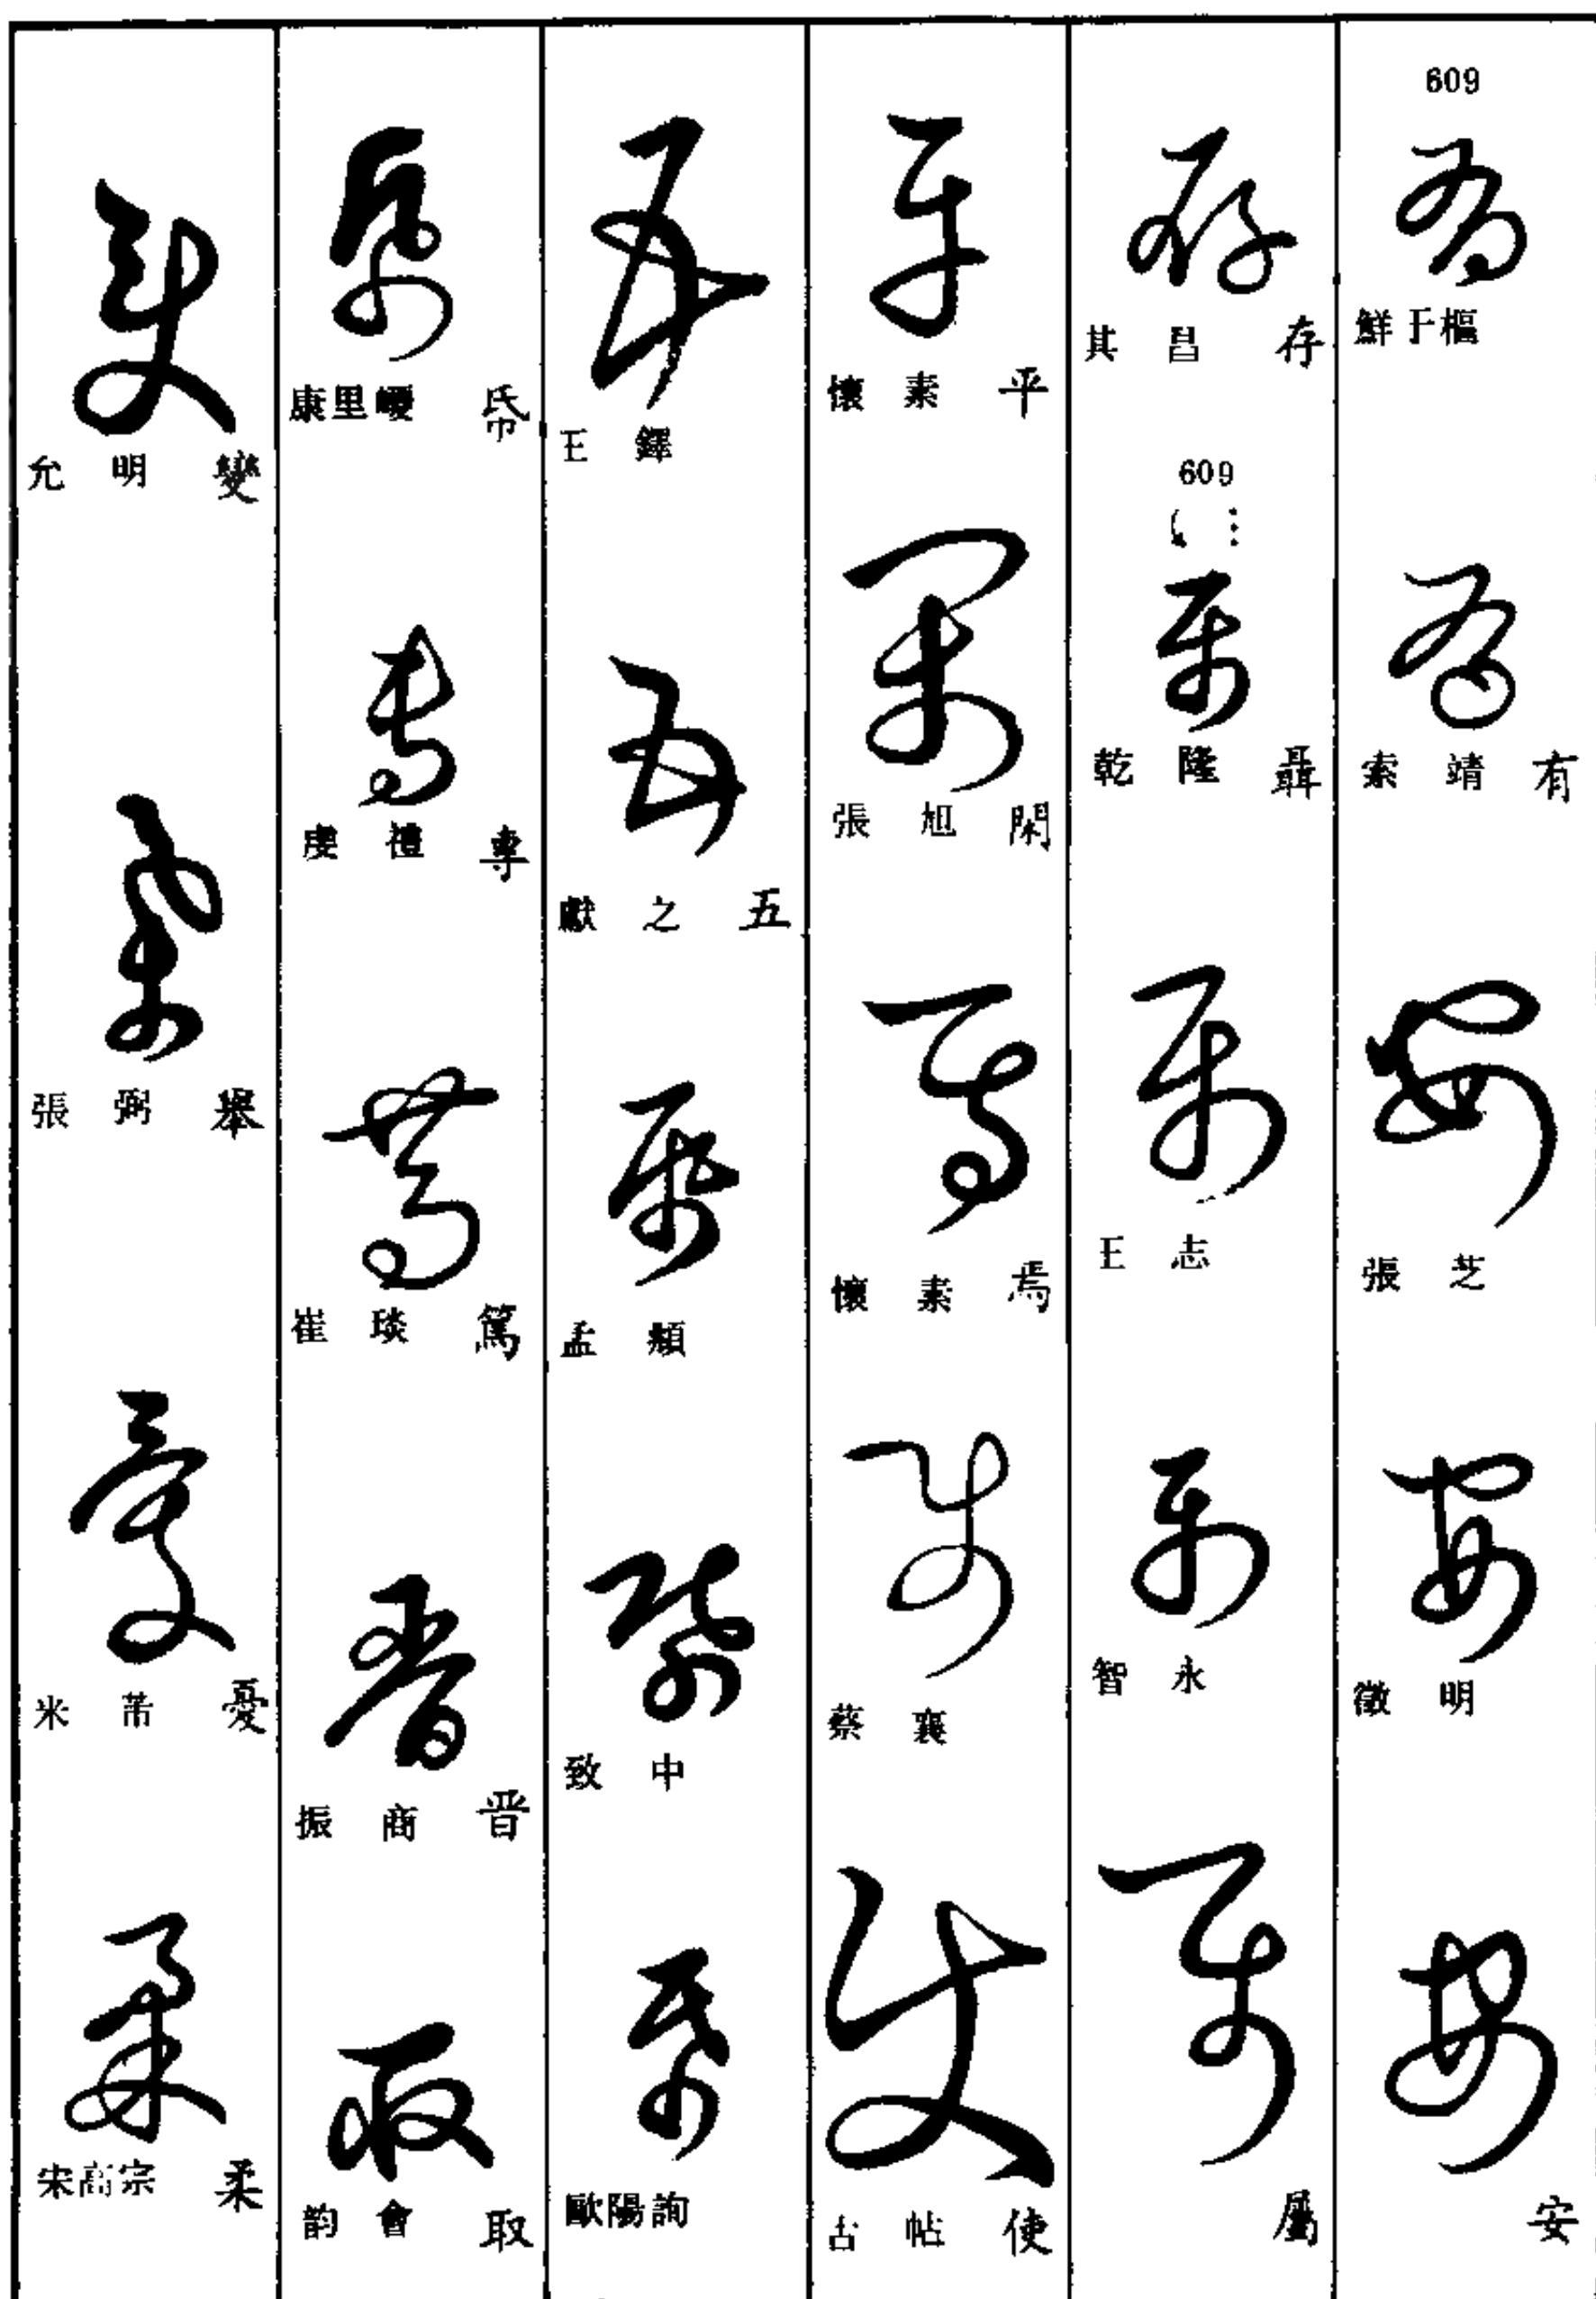 609
鮮于樞
索靖 有
張芝
徵明
安
其昌 存
609
乾隆 聶
王志
智永
屬
懷素 平
張旭 閑
懷素 焉
蔡襄
古帖 使
王鐸
獻之 五
孟頫
致中
歐陽詢
康里巙 帋
虔禮 專
崔琰 篤
振商 晉
韵會 取
允明 變
張弼 舉
米芾 憂
宋高宗 柔